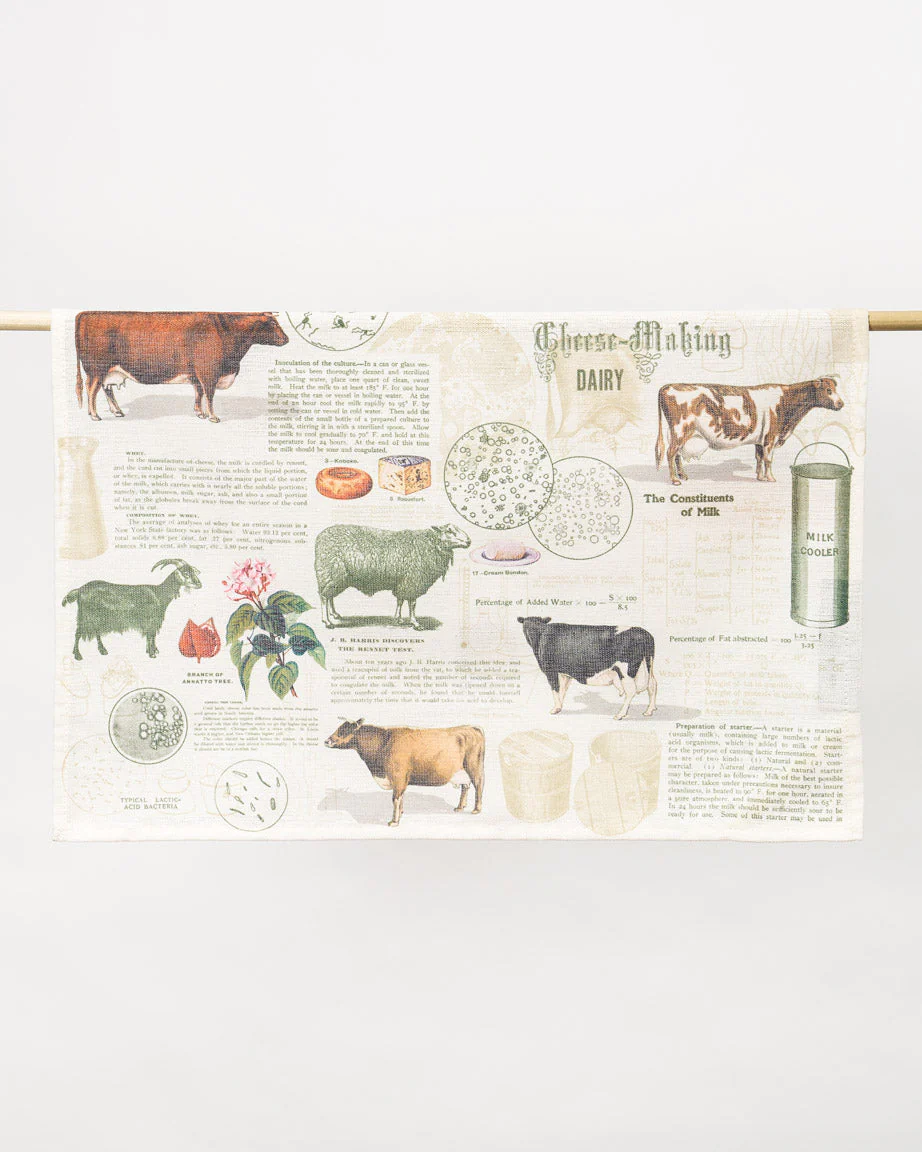 Cheese-Making
DAIRY
Inoculation of the culture.—In a can or glass ves-
sel that has been thoroughly cleaned and sterilized
with boiling water, place one quart of clean, sweet
milk. Heat the milk to at least 185° F. for one hour
by placing the can or vessel in boiling water. At the
end of an hour cool the milk rapidly to 95° F. by
setting the can or vessel in cold water. Then add the
contents of the small bottle of a prepared culture to
the milk, stirring it in with a sterilized spoon. Allow
the milk to cool gradually to 70° F. and hold at this
temperature for 24 hours. At the end of this time
the milk should be sour and coagulated.
WHEY.
In the manufacture of cheese, the milk is curdled by rennet,
and the curd cut into small pieces from which the liquid portion,
or whey, is expelled. It consists of the major part of the water
of the milk, which carries with it nearly all the soluble portions;
namely, the albumen, milk sugar, ash, and also a small portion
of fat, as the globules break away from the surface of the curd
when it is cut.
COMPOSITION OF WHEY.
The average of analyses of whey for an entire season in a
New York State factory was as follows: Water 93.12 per cent,
total solids 6.88 per cent, fat .27 per cent, nitrogenous sub-
stances .81 per cent, ash sugar, etc., 5.80 per cent.
5 Roquefort.
The Constituents
of Milk
MILK
COOLER
17-Cream Bondon.
Percentage of Added Water × 100 — S × 100
8.5
Percentage of Fat abstracted = 100 3·25 — f
3·25
J. B. HARRIS DISCOVERS
THE RENNET TEST.
About ten years ago J. B. Harris conceived this idea and
used a teacupful of milk from the vat, to which he added a tea-
spoonful of rennet and noted the number of seconds required
to coagulate the milk. When the milk was ripened down to a
certain number of seconds, he found that he could foretell
approximately the time that it would take for acid to develop.
BRANCH OF
ANNATTO TREE.
TYPICAL LACTIC-
ACID BACTERIA
Preparation of starter—A starter is a material
(usually milk), containing large numbers of lactic
acid organisms, which is added to milk or cream
for the purpose of causing lactic fermentation. Start-
ers are of two kinds: (1) Natural and (2) com-
mercial. (1) Natural starters.—A natural starter
may be prepared as follows: Milk of the best possible
character, taken under precautions necessary to insure
cleanliness, is heated to 90° F. for one hour, aerated in
a pure atmosphere, and immediately cooled to 65° F.
In 24 hours the milk should be sufficiently sour to be
ready for use. Some of this starter may be used in